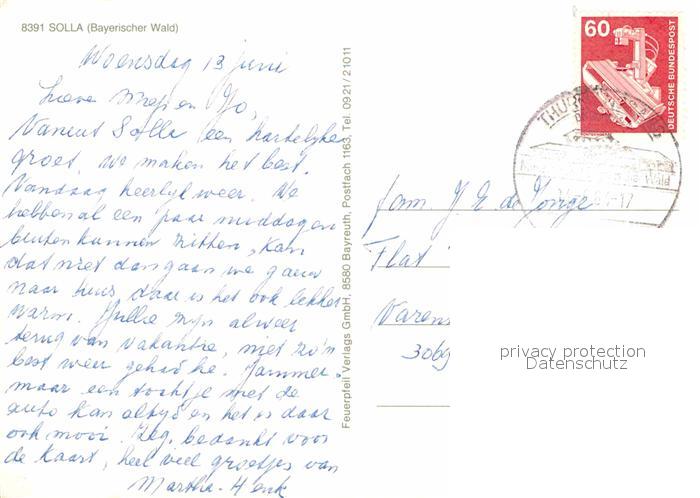 8391 SOLLA (Bayerischer Wald)
Woensdag 13 juni
Lieve en Jo,
Vanuit Solla een hartelijke
groet. We maken het best.
Vandaag heerlijk weer. We
hebben al een paar middagen
buiten kunnen zitten, kan
dat niet dan gaan we gauw
naar huis daar is het ook lekker
warm. Jullie zijn alweer
terug van vakantie, niet zo'n
best weer gehad he. Jammer.
maar een tochtje met de
auto kan altijd en het is daar
ook mooi. Zeg, bedankt voor
de kaart, heel veel groetjes van
Martha - Henk
Feuerpfeil Verlags GmbH, 8580 Bayreuth, Postfach 1163, Tel. 0921 / 21011
60
DEUTSCHE BUNDESPOST
fam. J. E. de Jonge
Flat
Varens
3069
privacy protection
Datenschutz